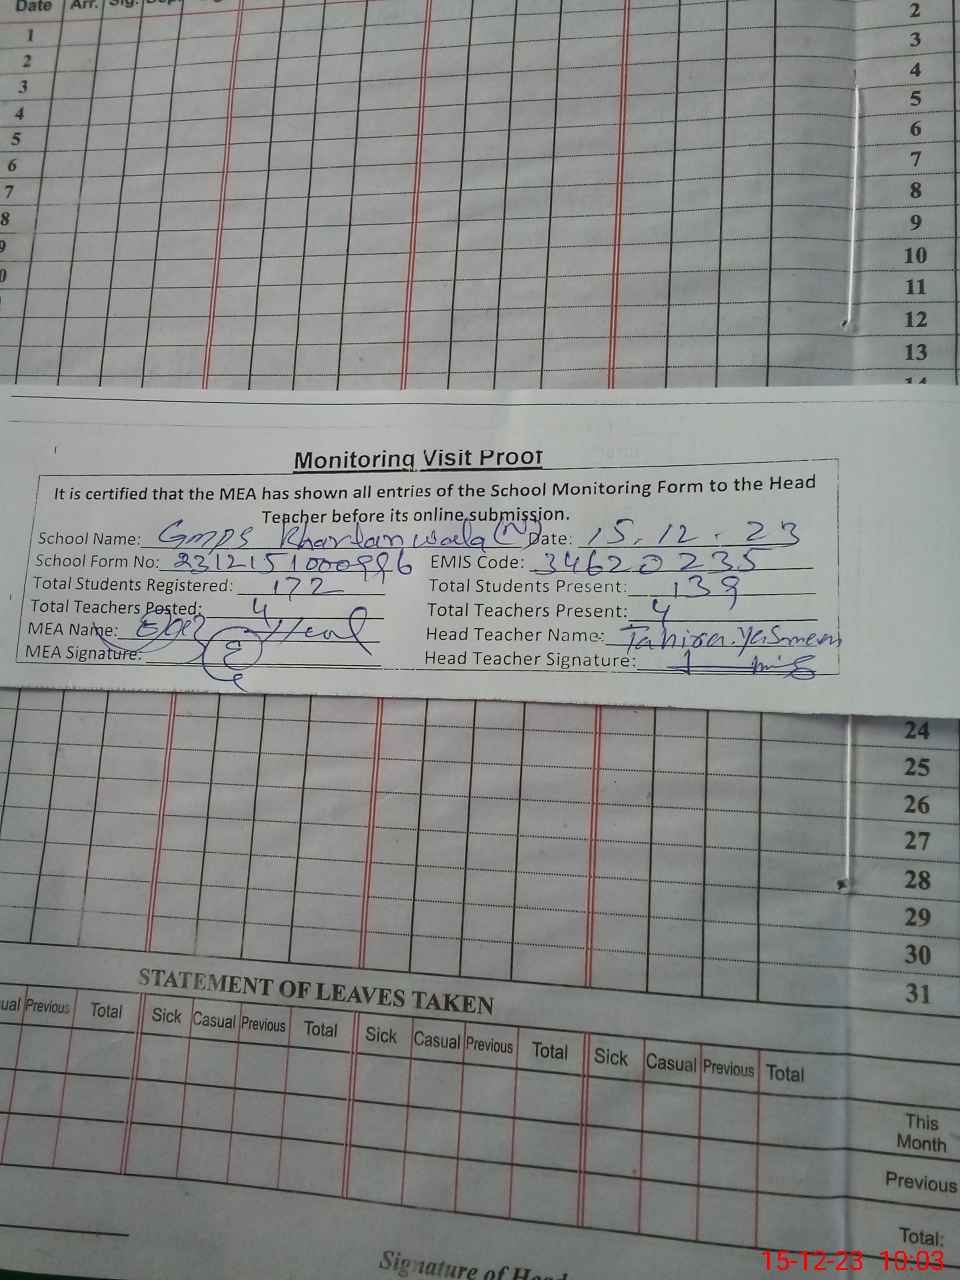 Date Arr. Sig.
1 2
2 3
3 4
4 5
5 6
6 7
7 8
8 9
9 10
0 11
12
13
14
Monitoring Visit Proof
It is certified that the MEA has shown all entries of the School Monitoring Form to the Head
Teacher before its online submission.
School Name: GMPS Kharlan wala (N) Date: 15.12.23
School Form No: EMIS Code: 34620235
Total Students Registered: 172 Total Students Present: 139
Total Teachers Posted: 4 Total Teachers Present: 4
MEA Name: Head Teacher Name: Tahira.Yasmeen
MEA Signature: Head Teacher Signature:
24
25
26
27
28
29
30
31
STATEMENT OF LEAVES TAKEN
ual Previous Total Sick Casual Previous Total Sick Casual Previous Total Sick Casual Previous Total
This
Month
Previous
Total:
Signature of Head
15-12-23 10:03